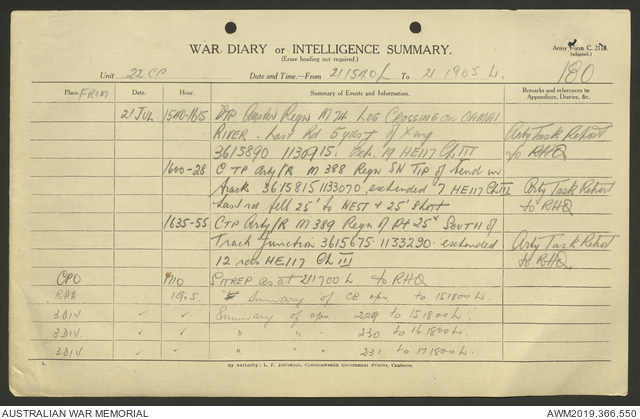 WAR DIARY or INTELLIGENCE SUMMARY.
(Erase heading not required.)
Army Form C. 2118.
(adapted.)
180
Unit 22 CP Date and Time.—From 211540L To 21 1905 L.
Place. FROM Date. Hour. Summary of Events and Information. Remarks and references to Appendices, Diaries, &c.
21 JUL 1540-1615 Regn M 74 LOG CROSSING ON
RIVER. Last Rd 5 yds of Xing Arty Task Report
3615890 1130915. 19 HE117 Ch III to RHQ
1600-28 CTP Arty/R M 388 Regn SN Tip of bend in
track 3615815 1133070 expended 7 HE117 Ch III Arty Task Report
Last rd fell 25' to WEST & 25' Short to RHQ
1635-55 CTP Arty/R M389 Regn of Pt 25x SOUTH of
Track Junction 3615675 1133290 expended Arty Task Report
12 rds HE117 Ch III to RHQ
CPO 1710 SITREP as at 211700 L to RHQ
RAA Summary of CB opn to 151800 L.
3 DIV ✓ ✓ Summary of opn 229 to 151800 L.
3 DIV ✓ ✓ " " " 230 to 161800 L.
3 DIV ✓ ✓ " " " 231 to 171800 L.
By Authority: L. F. Johnston, Commonwealth Government Printer, Canberra.
AUSTRALIAN WAR MEMORIAL
AWM2019.366.550